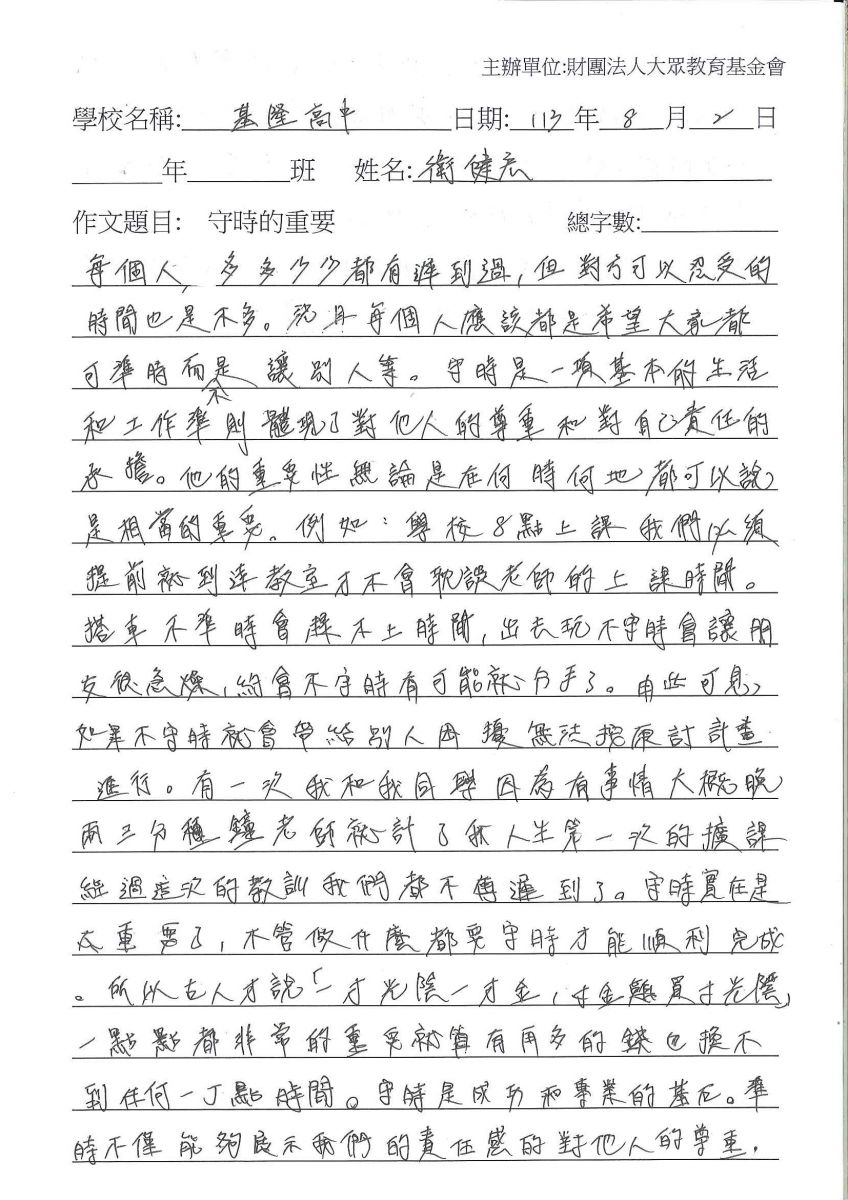 主辦單位:財團法人大眾教育基金會
學校名稱: 基隆高中 日期: 113 年 8 月 2 日
年 班 姓名: 衛健宏
作文題目: 守時的重要 總字數:
每個人,多多少少都有遲到過,但對方可以忍受的
時間也是不多。況且每個人應該都是希望大家都
可準時而不是讓別人等。守時是一項基本的生活
和工作準則體現了對他人的尊重和對自己責任的
承擔。他的重要性無論是在何時何地都可以說
是相當的重要。例如:學校8點上課我們必須
提前就到達教室才不會耽誤老師的上課時間。
搭車不準時會趕不上時間,出去玩不守時會讓朋
友很急燥,約會不守時有可能就分手了。由此可見
如果不守時就會帶給別人困擾無法按原討計畫
進行。有一次我和我同學因為有事情大概晚
兩三分種鐘老師就計了我人生第一次的擴課
經過這次的教訓我們都不傳遲到了。守時實在是
太重要了,不管做什麼都要守時才能順利完成
。所以古人才說「一寸光陰一寸金,寸金難買寸光陰」
一點點都非常的重要就算有再多的錢也換不
到任何一丁點時間。守時是成功和專業的基石。準
時不僅能夠展示我們的責任感的對他人的尊重.